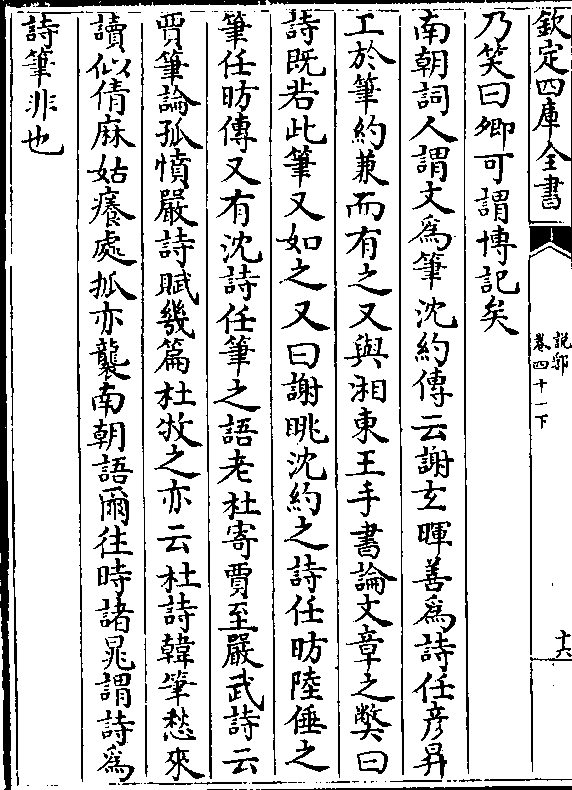 欽定四庫全書
說郛
卷四十一下
十六
乃笑曰卿可謂博記矣
南朝詞人謂文爲筆沈約傳云謝玄暉善爲詩任彦昇
工於筆約兼而有之又與湘東王手書論文章之獘曰
詩既若此筆又如之又曰謝眺沈約之詩任昉陸倕之
筆任昉傳又有沈詩任筆之語老杜寄賈至嚴武詩云
賈筆論孤憤嚴詩賦幾篇杜牧之亦云杜詩韓筆愁來
讀似倩麻姑癢處抓亦襲南朝語爾往時諸晁謂詩爲
詩筆非也